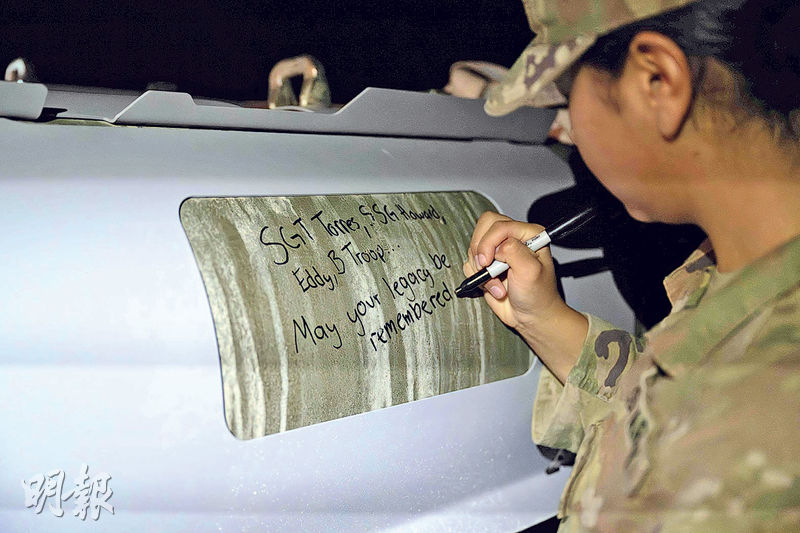 SGT Torres, SSG Howard,
Eddy, B Troop...
May your legacy be
remembered
明報